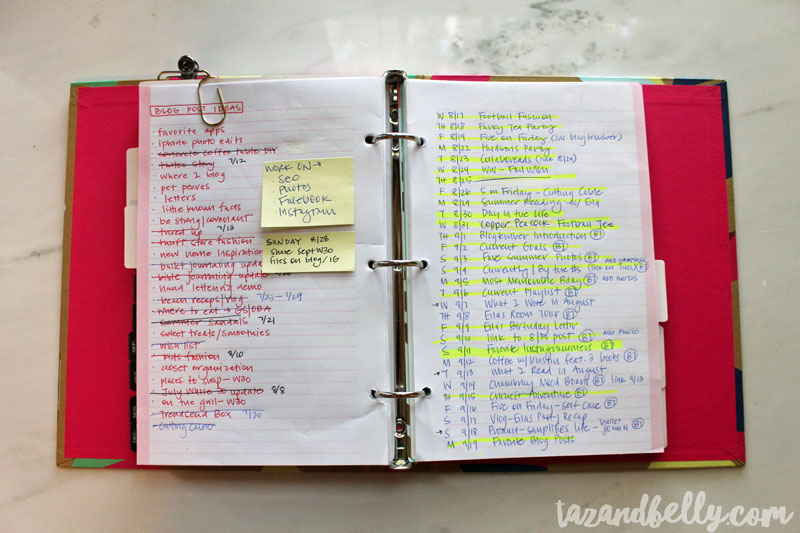 BLOG POST IDEAS
· favorite apps
· iphone photo edits
· concrete coffee table DIY
· tattoo story 7/12
· where 2 blog
· pet peeves
· letters
· little known facts
· be strong/covenant
· tured up 7/13
· thrift store fashion
· new home inspiration
· bullet journaling update
· bible journaling update
· hand lettering demo
· bezin recaps/vlog 7/25 - 7/29
· where to eat → GS/OBA
· summer sandals 7/21
· sweet treats/smoothies
· wish list
· kids fashion 8/10
· closet organization
· places to shop - W30
· July Whole 30 update 8/8
· on the grill - W30
· Trendsend Box 7/30
· cutting cable
WORK ON →
· SEO
· Photos
· Facebook
· Instagram
SUNDAY 8/28
share Sept W30
files on blog/IG
W 8/17 Football Fashion
TH 8/18 Furry Tea Party
F 8/19 Five on Friday (inc blogtember)
M 8/22 Hudsons Party
T 8/23 Collaboreads (link 8/29)
W 8/24 WW - Fall Wish
TH 8/25
F 8/26 5 on Friday - Cutting Cable
M 8/29 Summer Reading w/ Ella
T 8/30 Day in the Life
W 8/31 Copper Peacock Football Tee
TH 9/1 Blogtember Introduction (BT)
F 9/2 Current Goals (BT)
S 9/3 Fave Summer Photos (BT) ADD
S 9/4 Currently | By the #s (link on Tues) (BT)
M 9/5 Most Memorable Bday (BT) ADD PHOTOS
T 9/6 Current Playlist (BT)
→ W 9/7 What I Wore in August
TH 9/8 Ellas Room Tour (BT)
F 9/9 Ellas Birthday Letter
S 9/10 link to 8/30 post (BT) ADD PHOTO
S 9/11 Favorite Instagrammers (BT)
M 9/12 Coffee w/ Kristin feat. 3 books (BT)
→ T 9/13 What I Read in August
W 9/14 Charlotte Mood Board (BT) link 9/13
TH 9/15 Adventure (BT)
F 9/16 Five on Friday - Self Care (BT)
S 9/17 Vlog - Ellas Party Recap
→ S 9/18 Product - simplifies life - bullet journal (BT)
M 9/19 Favorite Blog Posts
tazandbelly.com